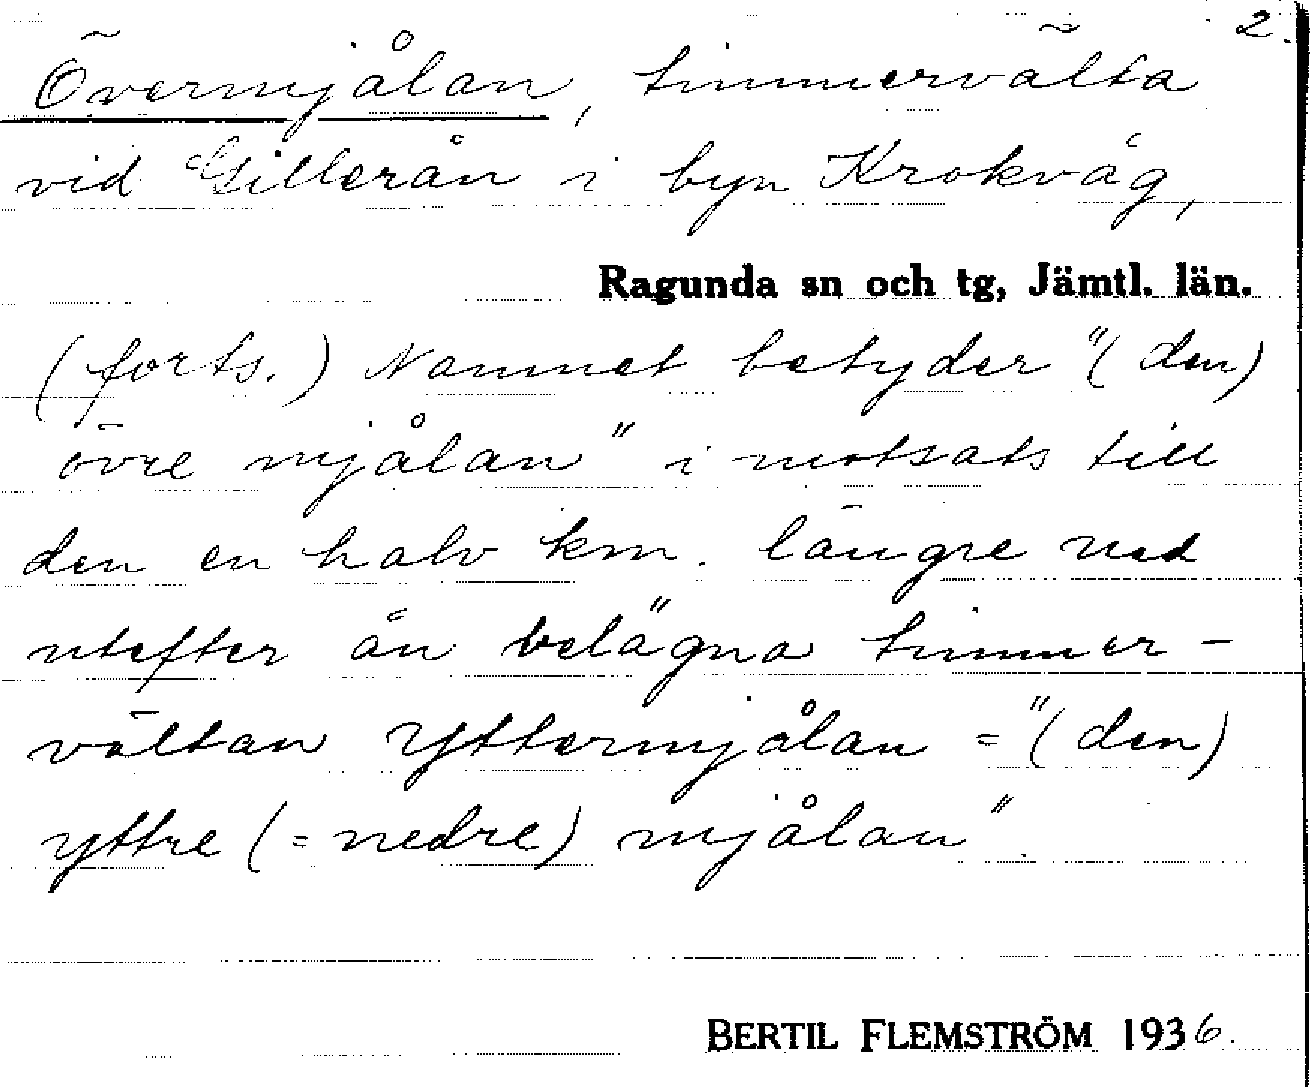 2.
Övermjålan, timmervälta
vid Gillerån i byn Krokvåg,
Ragunda sn och tg, Jämtl. län.
(forts.) Namnet betyder "(den)
övre mjålan" i motsats till
den en halv km. längre ned
utefter ån belägna timmer-
vältan Yttermjålan = "(den)
yttre (= nedre) mjålan"
BERTIL FLEMSTRÖM 1936.